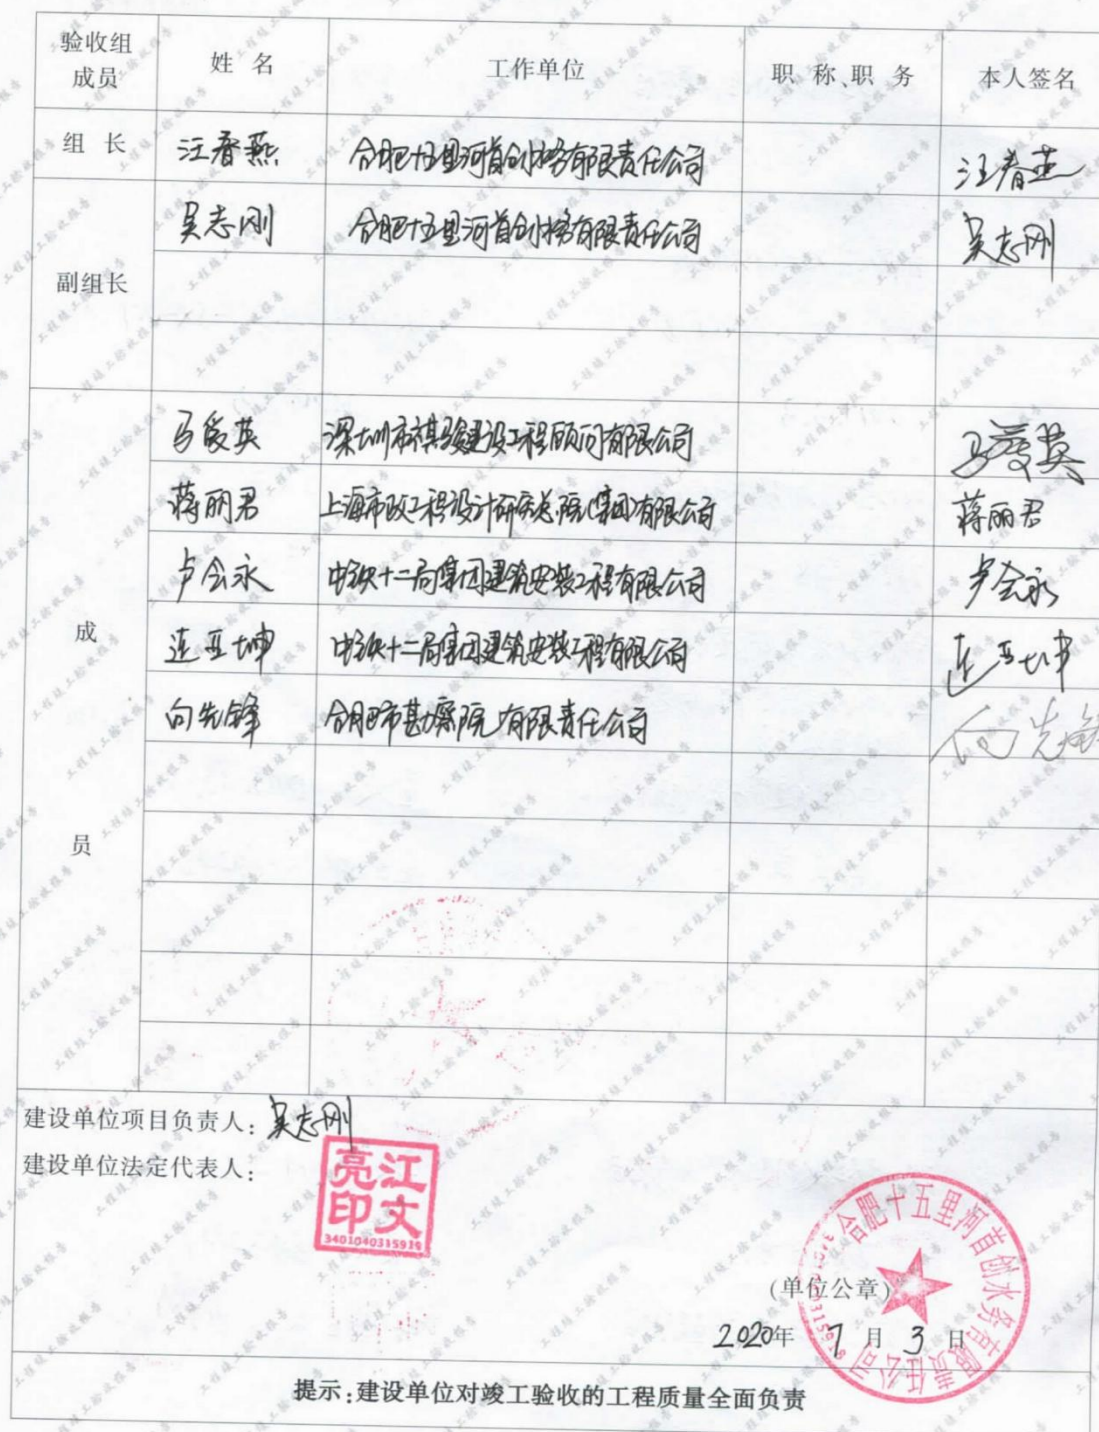 验收组成员 姓 名 工作单位 职 称、职 务 本人签名
组 长 汪春燕 合肥十五里河首创水务有限责任公司 汪春燕
副组长 吴志刚 合肥十五里河首创水务有限责任公司 吴志刚
成员
马爱英 深圳市祺骏建设工程顾问有限公司 马爱英
蒋丽君 上海市政工程设计研究总院(集团)有限公司 蒋丽君
卢会永 中铁十二局集团建筑安装工程有限公司 卢会永
连亚坤 中铁十二局集团建筑安装工程有限公司 连亚坤
向先锋 合肥市勘察院有限责任公司 向先锋
建设单位项目负责人: 吴志刚
建设单位法定代表人:
江文亮印
合肥十五里河首创水务有限责任公司
(单位公章)
2020年 7 月 3 日
提示:建设单位对竣工验收的工程质量全面负责
工程竣工验收报告